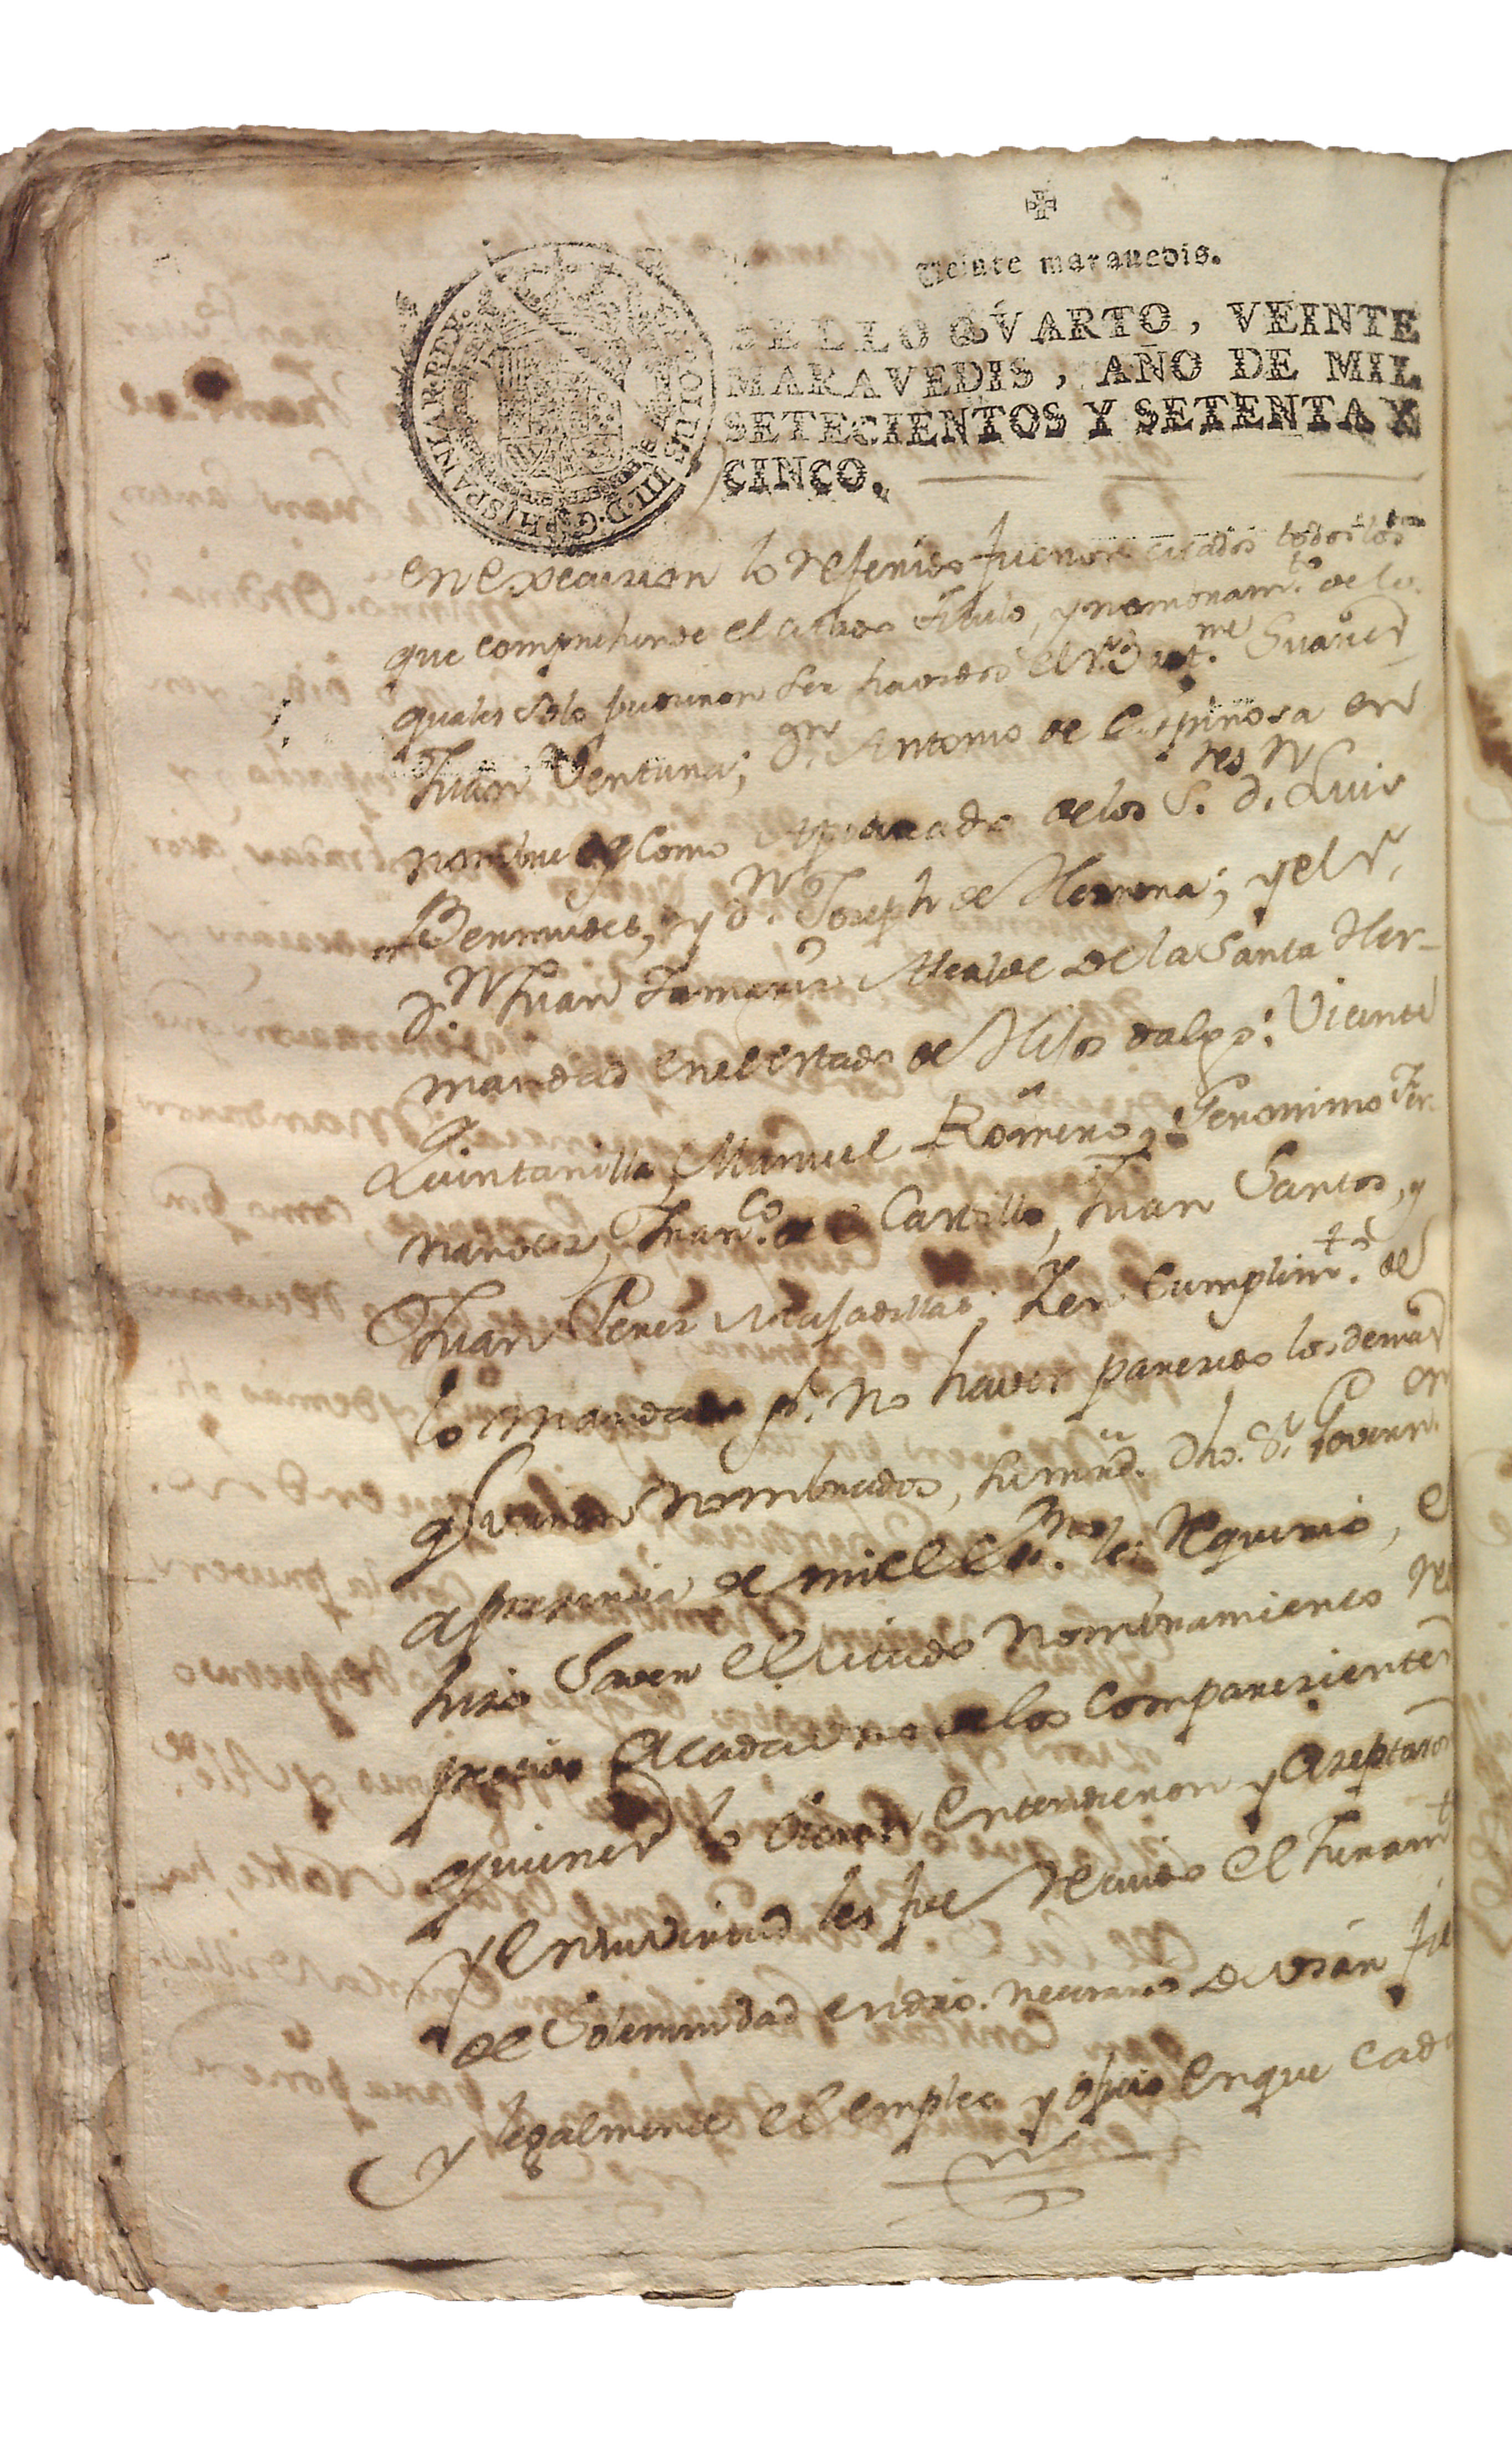 Veinte marauedis.
SELLO QVARTO, VEINTE
MARAVEDIS, AÑO DE MIL
SETECIENTOS Y SETENTA Y
CINCO.
en execucion lo referido fueron citados todos los
que comprehende el citado titulo, y nombram.to de lo
quales solo pudieron ser havidos el Sr. Suarez
Juan Ventura; Dn. Antonio de Espinosa en
nombre y como Apoderado de los S.res Dn. Luis
Bermudes, y Dn. Joseph de Herrera; y el Sr.
Dn. Juan Tamariz Alcalde de la Santa Her-
mandad en el estado de Hijos dalgo; Vicente
Quintanilla, Manuel Romero, Geronimo Fer-
nandez, Fran.co de Castillo, Juan Santos, y
Juan Perez Y en cumplim.to de
lo mandado pr. no haver parecido los demas
q fueron nombrados, su mrd. dho. Sr. Govern.
a presencia de mi el Es.no les requirio, e
hizo saver el citado nombramiento
precedido a cada uno de los comparecientes
quienes lo oieron entendieron y aceptaron
y en su virtud les fue recivido el juram.t
de solemnidad en dro. necesario de usar fie
y legalmente el empleo y oficio en que cada